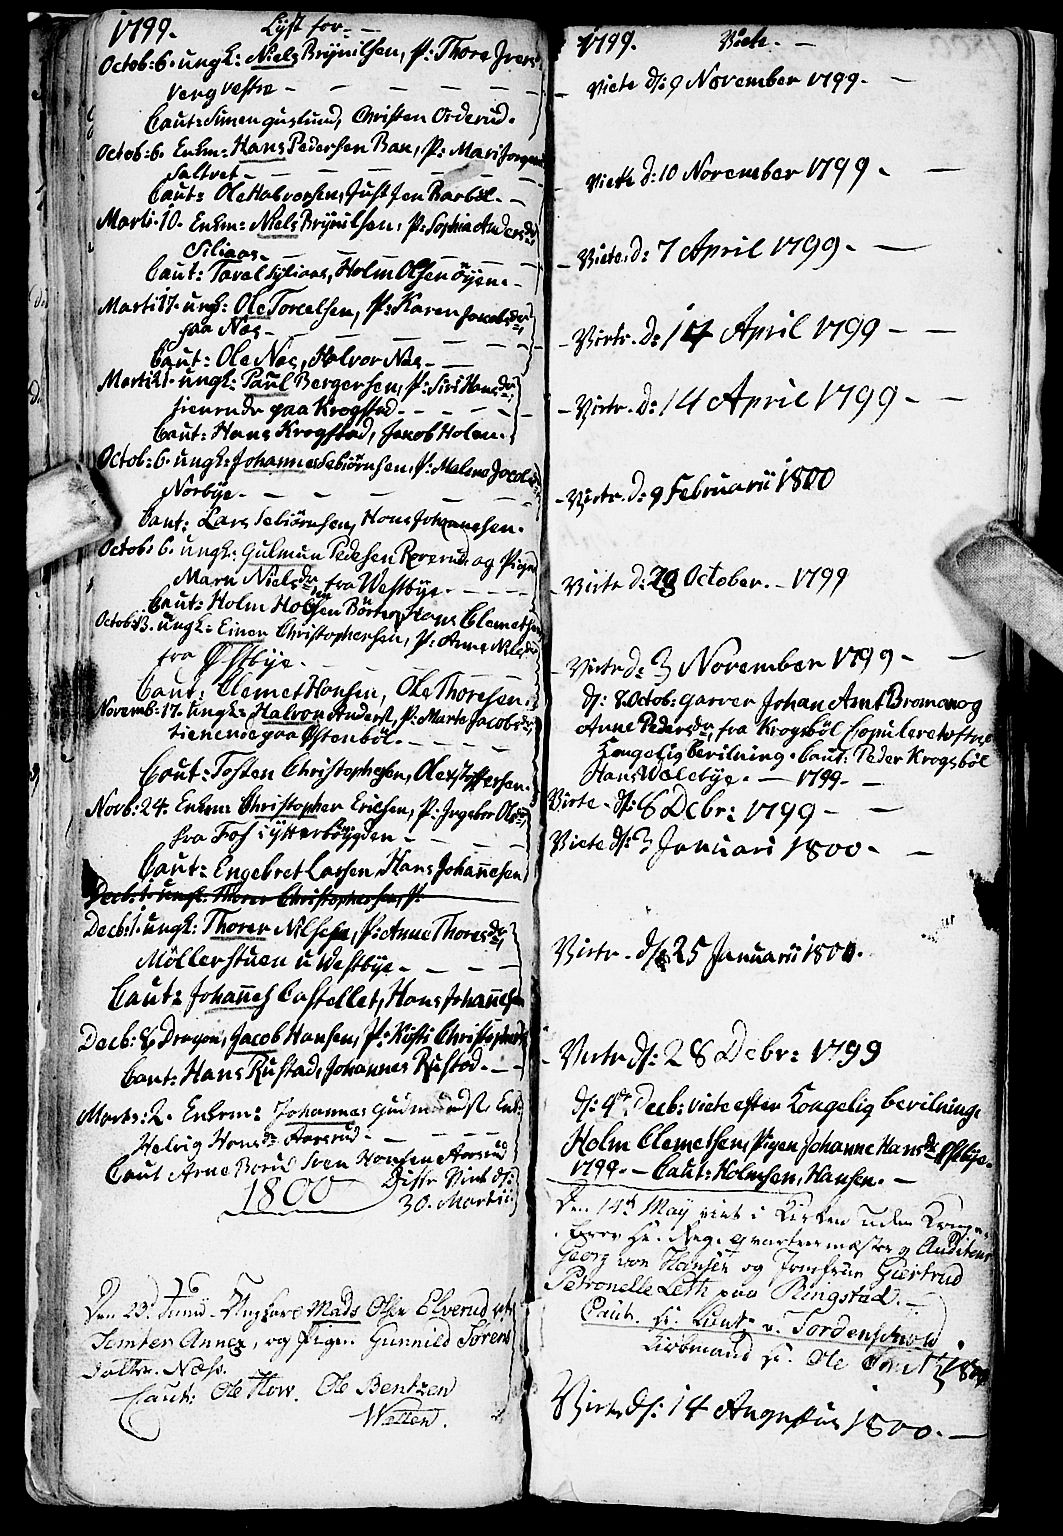 1799. Lyst for -
Octob: 6. ungk: Niels Brÿnilsen, P: Thore Ivers
Berg vestre - - - -
Caut: Simen guslund, Christen Orderud.
Octob: 6. Enkm: Hans Pedersen Bau, P: Mari
Saltvet - - - -
Caut: Ole Halvorsen, Just Jen Barböl. -
Marti. 10. Enkm: Niels Brÿnilsen, P: Sophia Andersdr
Siliaas - - - -
Caut: Taral Syliaas, Holm Olsen öyen -
Marti 17. ungk: Ole Torcelsen, P: Karen Jacobsdr
paa Næs - - - -
Caut: Ole Næs, Halvor Næs -
Marti 21. ungk: Paul Bergersen, P: Siri Hansdr
tienende paa Krogstad - - -
Caut: Hans Krogstad, Jacob Holen.
Octob: 6. ungk: Johannes Sebiörnsen, P: Malene Jacobs
Norbye - - - -
Caut: Lars Sebiörnsen, Hans Johannesen.
Octob: 6. ungk: Gulmun Pedersen Rorerud og Pigen
Mari Nielsdr fra Westbye - - -
Caut: Holm Holsen Börter, Hans Clemetsen
Octob: 13. ungk: Einer Christophersen, P: Anne Nilsdr
fra Østbye - - -
Caut: Clemet Hansen, Ole Thoresen.
Novemb: 17. ungk: Halvor Anders, P: Marte Jacobsdr
tienende paa Østenböl - - -
Caut: Tosten Christophersen, Ole Kristoffersen.
Novb: 24. Enkm: Christopher Ericsen, P: Ingebor Olsdr
fra Fos i ytterböygden - - -
Caut: Engebret Larsen, Hans Johannesen
Decb: 1. ungk: Thorer Christophersen, P:
Decb: 1. ungk: Thorer Nilsen, P: Anne Thoresdr
Möllerstuen u Westbye - - -
Caut: Johannes Castellet, Hans Johannesen
Decb: 8 Dragon, Jacob Hansen, P: Kisti Christophers
Caut: Hans Rustad, Johannes Rustad. - -
Marts: 2. Enkem: Johannes Gudmunds. Enk:
Helvig Hansdr Aaserud - - -
Caut Arne Borud Sven Hansen Aaserud
1800 Disse Viet d:
30. Martii
Den 23. Junii - Ungkarl Mads Olsen Elverud
Semter Annex, og Pigen Gunnild Sørens
Datter Næss.
Caut: Ole How. Ole Bentzen
Walter.
1799. Viete. -
Viete d: 9 November 1799. -
Viete d: 10 November 1799 - -
Viete. d: 7 April 1799. -
Viete. d: 14 April 1799 - -
Viete. d: 14 April 1799 - -
Viete. d: 9 Februarii 1800
Viete d: 28 October. - 1799
Viete d: 3 November 1799 - -
d: 8. Octob: garver Johan Amt Broman og
Anne Pedersdr, fra Krogsböl Copuleret efter
Kongelig bevilning. Caut: Peder Krogsböl
Hans Walebye. - 1799. -
Viete - d: 8 Debr: 1799 - -
Viete d: 3 Januari 1800. -
Viete. d: 25 Januarii 1800.
Viete d: 28 Debr: 1799
d: 4de Decb: viete efter Kongelig bevilning
Holm Clemetsen, Pigen Johanne Hansdr Østbye.
1799. - Caut: Holmsen, Hansen. -
Den 14de May viet i Kirken uden Konge-
brev Hr. Reg. qvarteermester og Auditeur
Georg von Hansen og Jomfrue Giertrud
Petronelle Leth paa Ringstad. -
Caut. Hr. Lieut: v. Tordenschiold
Kiöbmand Hr. Ole 1800
Viete d: 14 Augustus 1800. -